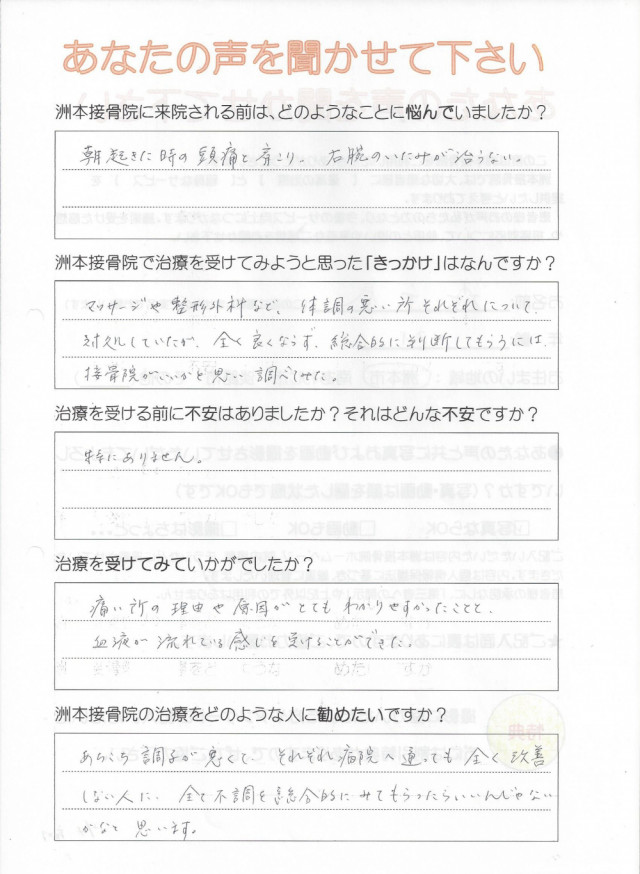 あなたの声を聞かせて下さい
洲本接骨院に来院される前は、どのようなことに悩んでいましたか？
朝起きた時の頭痛と肩こり。右腕のいたみが治らない。
洲本接骨院で治療を受けてみようと思った「きっかけ」はなんですか？
マッサージや整形外科など、体調の悪い所それぞれについて
対処していたが、全く良くならず、総合的に判断してもらうには
接骨院がいいかと思い調べてみた。
治療を受ける前に不安はありましたか？それはどんな不安ですか？
特にありません。
治療を受けてみていかがでしたか？
痛い所の理由や原因がとてもわかりやすかったことと、
血液が流れている感じを受けることができた。
洲本接骨院の治療をどのような人に勧めたいですか？
あちこち調子が悪くて、それぞれ病院へ通っても全く改善
しない人に、全て不調を総合的にみてもらったらいいんじゃない
かなと思います。